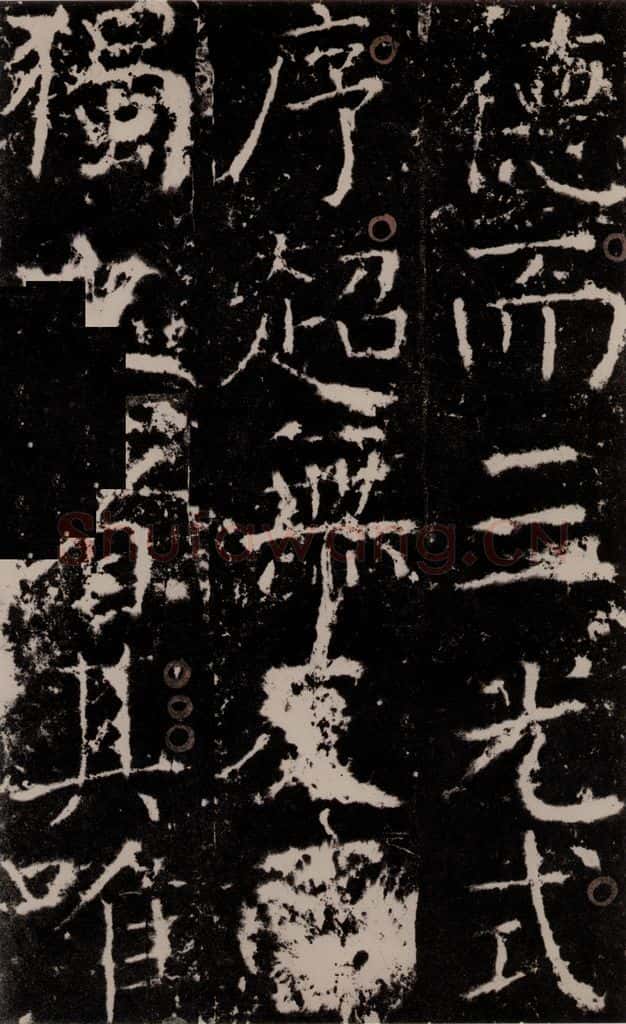 德而三光式
序超無⋯
獨⋯其唯
Shufawang.CN